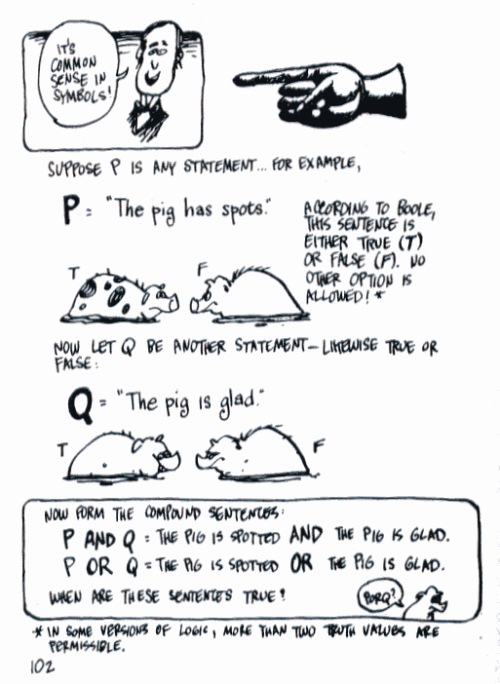 IT'S
COMMON
SENSE IN
SYMBOLS!
SUPPOSE P IS ANY STATEMENT... FOR EXAMPLE,
P = "The pig has spots."
ACCORDING TO BOOLE,
THIS SENTENCE IS
EITHER TRUE (T)
OR FALSE (F). NO
OTHER OPTION IS
ALLOWED! *
T
F
NOW LET Q BE ANOTHER STATEMENT — LIKEWISE TRUE OR
FALSE:
Q = "The pig is glad."
T
F
NOW FORM THE COMPOUND SENTENCES:
P AND Q = THE PIG IS SPOTTED AND THE PIG IS GLAD.
P OR Q = THE PIG IS SPOTTED OR THE PIG IS GLAD.
WHEN ARE THESE SENTENCES TRUE?
PORQ?
* IN SOME VERSIONS OF LOGIC, MORE THAN TWO TRUTH VALUES ARE
PERMISSIBLE.
102